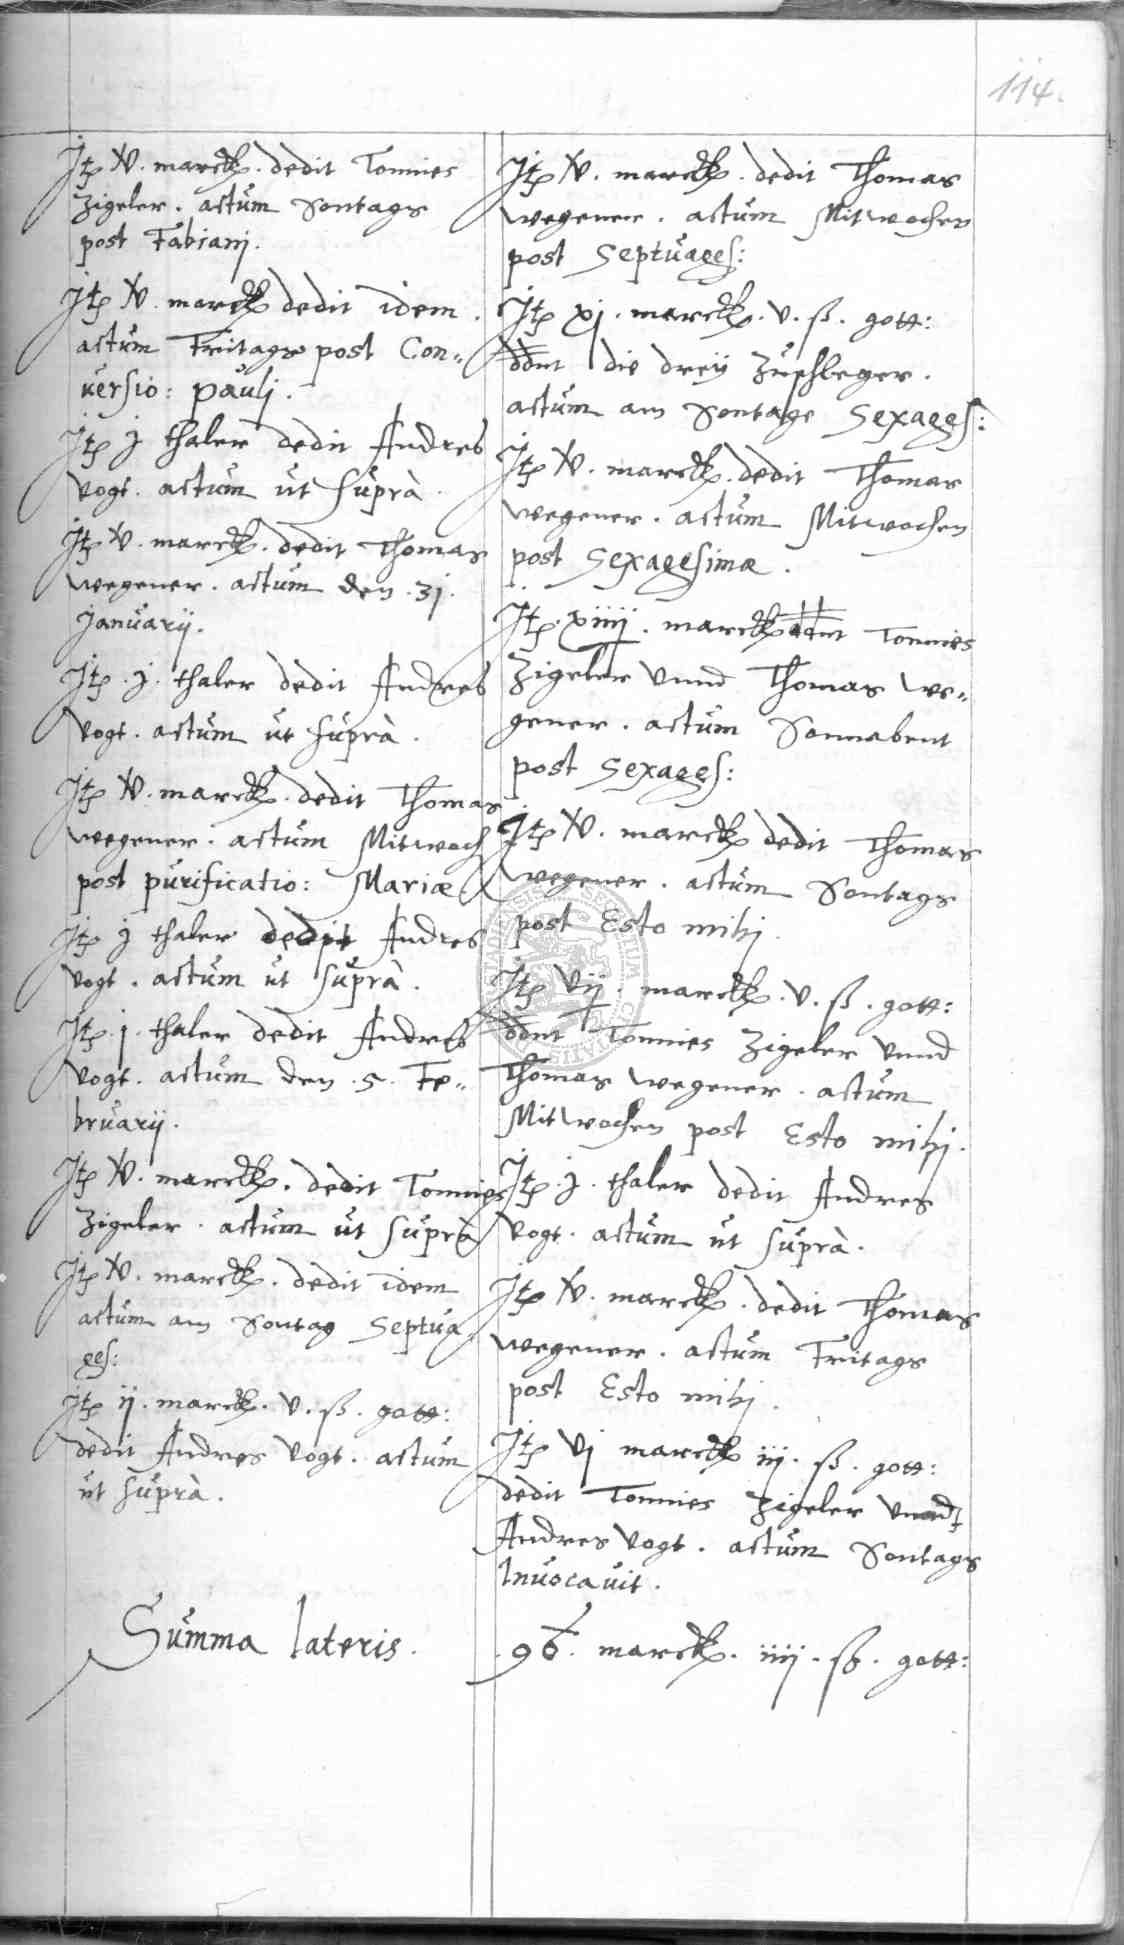 114.
Itp v. marck. dedit Tonnies
Zigeler. actum Sontags
post Fabianj.
Itp v. marck dedit idem.
actum Fritags post Con„
uersio: paulj.
Itp j thaler dedit Andres
Vogt. actum ut suprà.
Itp v. marck. dedit Thomas
wegener. actum den. 31.
Januarij.
Itp. j. thaler dedit Andres
Vogt. actum ut suprà.
Itp v. marck. dedit Thomas
wegener. actum Mitwoch
post purificatio: Mariæ
Itp j thaler dedit Andres
Vogt. actum ut suprà.
Itp. j. thaler dedit Andres
Vogt. actum den. 5. Fe„
bruarij.
Itp v. marck. dedit Tonnies
Zigeler. actum ut suprà
Itp v. marck. dedit idem
actum am Sontag Septua
ges:
Itp ij. marck. v. ß. gott:
dedit Andres Vogt. actum
ut suprà.
Itp v. marck. dedit Thomas
wegener. actum Mitwochen
post Septuages:
Itp xj. marck. v. ß. gott:
ddnt die dreÿ Zuschleger.
actum am Sontage Sexages:
Itp v. marck. dedit Thomas
wegener. actum Mitwochen
post Sexagesimæ.
Itp. xiiij. marck ddnt Tonnies
Zigeler vnnd Thomas we„
gener. actum Sonnabent
post Sexages:
Itp v. marck dedit Thomas
wegener. actum Sontags
post Esto mihj.
Itp vij. marck. v. ß. gott:
ddnt Tonnies Zigeler vnnd
Thomas wegener. actum
Mitwochen post Esto mihj.
Itp. j. thaler dedit Andres
Vogt. actum ut suprà.
Itp v. marck. dedit Thomas
wegener. actum Fritags
post Esto mihj.
Itp vj marck iij. ß. gott:
dedit Tonnies Zigeler vnnd
Andres Vogt. actum Sontags
Inuocauit.
Summa lateris. 96. marck. iiij. ß. gott: